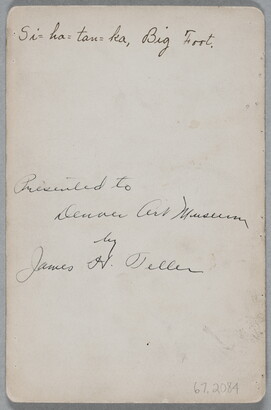 Si=ha=tan=ka, Big Foot.
Presented to
Denver Art Museum
by
James H. Teller
67.2084